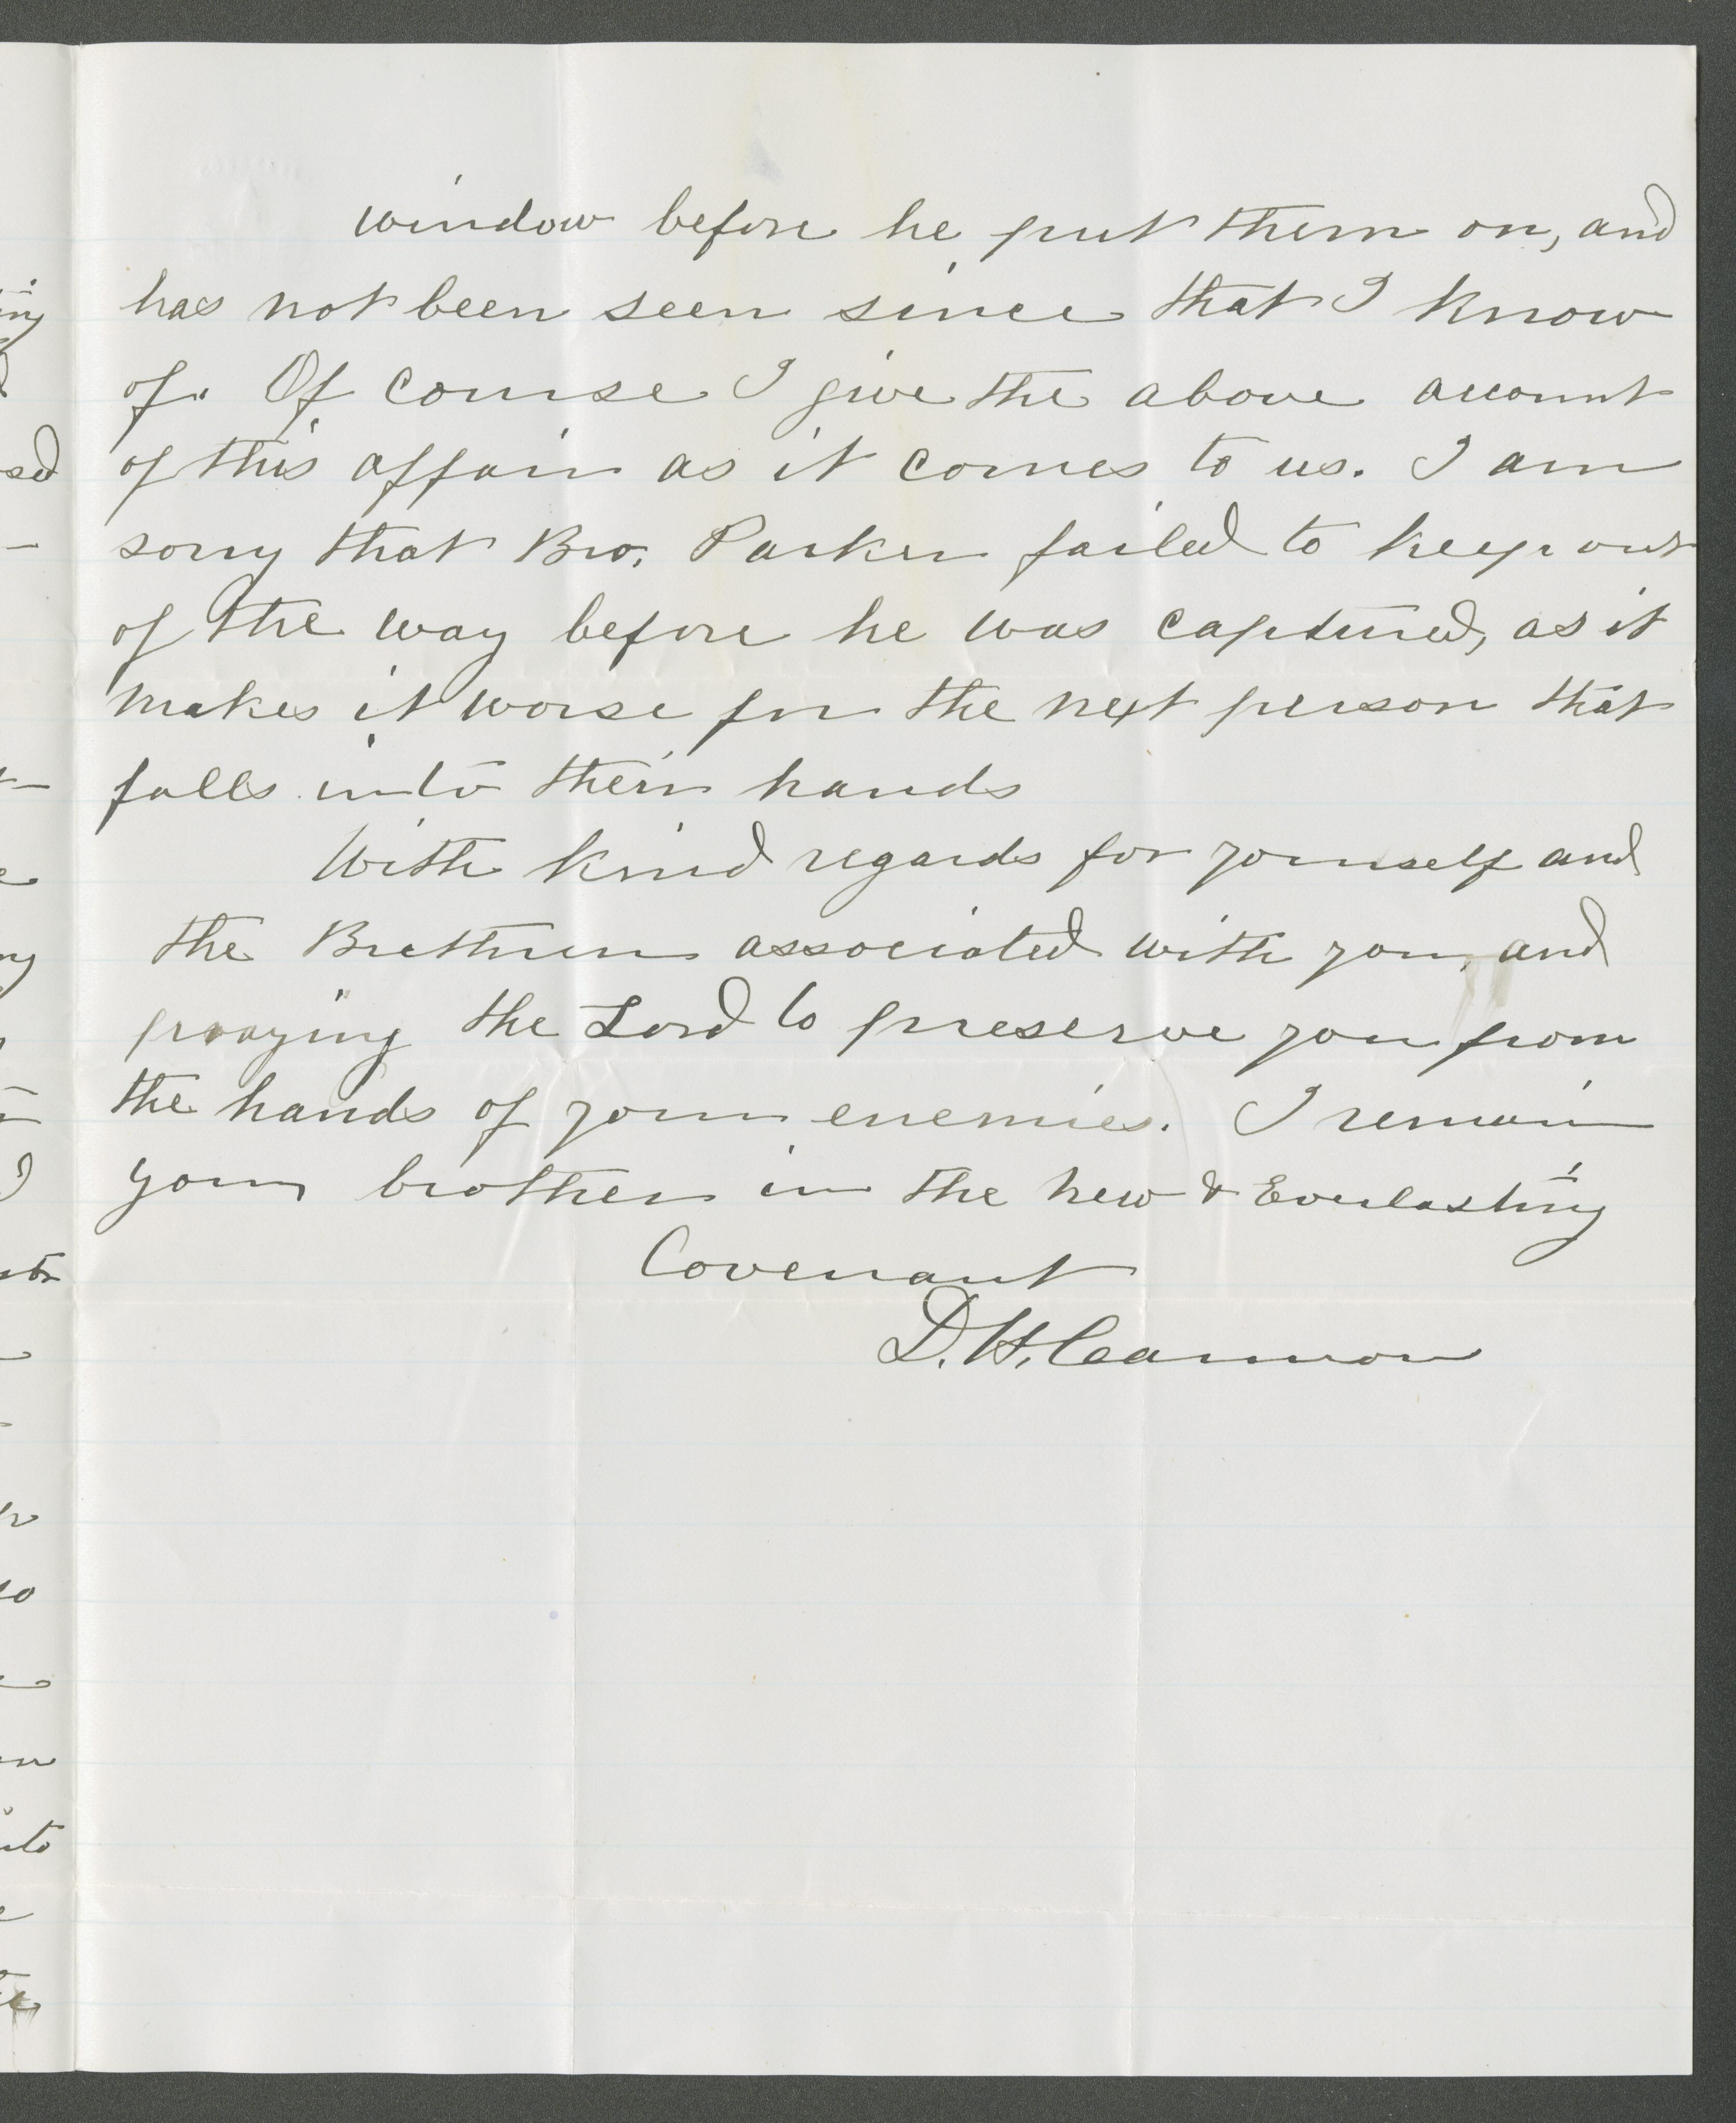 window before he put them on, and
has not been seen since that I know
of. Of course I give the above account
of this affair as it comes to us. I am
sorry that Bro. Parker failed to keep out
of the way before he was captured, as it
makes it worse for the next person that
falls into their hands
With kind regards for yourself and
the Brethren associated with you, and
praying the Lord to preserve you from
the hands of your enemies. I remain
your brother in the new & Everlasting
Covenant
D. H. Cannon